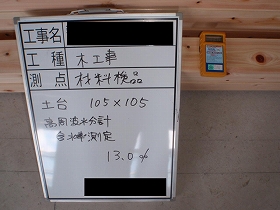 工事名
工種 木工事
測点 材料検品
土台 105×105
高周波水分計
含水率測定
13.0%